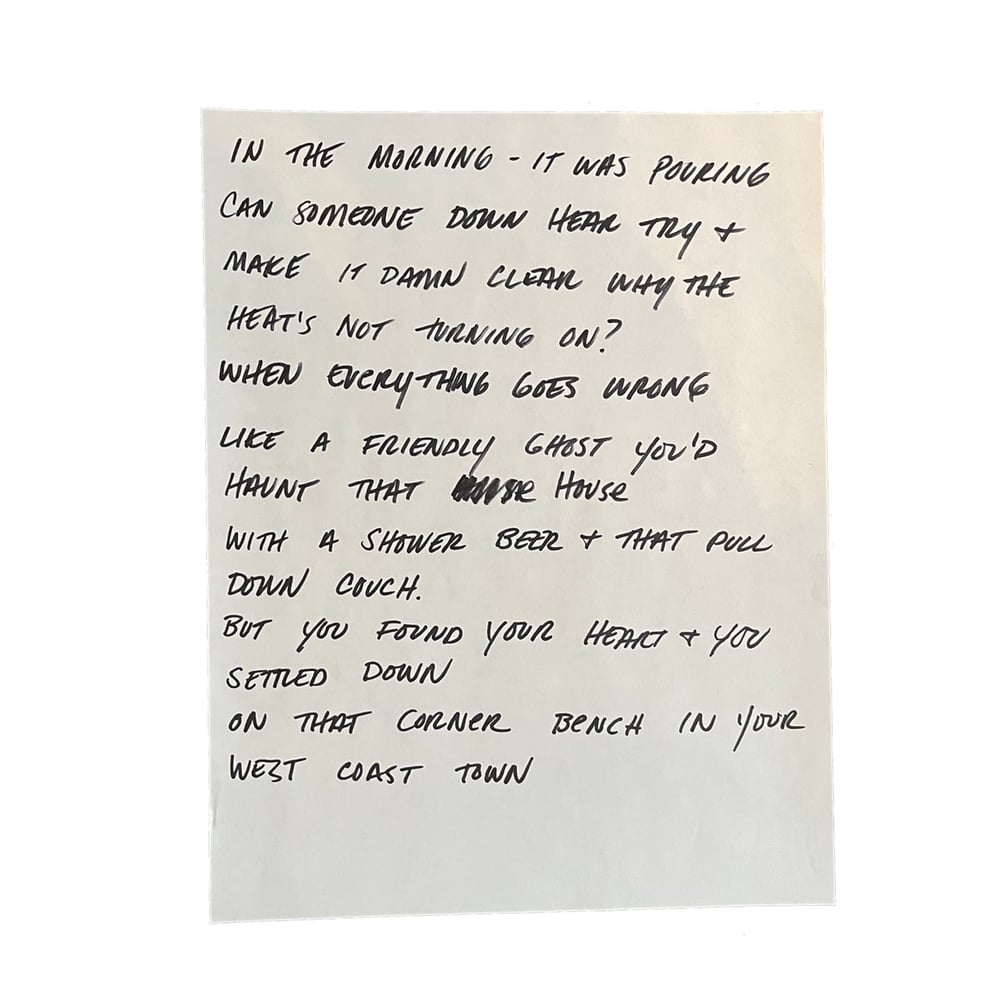 IN THE MORNING - IT WAS POURING
CAN SOMEONE DOWN HEAR TRY +
MAKE IT DAMN CLEAR WHY THE
HEAT'S NOT TURNING ON?
WHEN EVERYTHING GOES WRONG
LIKE A FRIENDLY GHOST YOU'D
HAUNT THAT HOUSE
WITH A SHOWER BEER + THAT PULL
DOWN COUCH.
BUT YOU FOUND YOUR HEART + YOU
SETTLED DOWN
ON THAT CORNER BENCH IN YOUR
WEST COAST TOWN